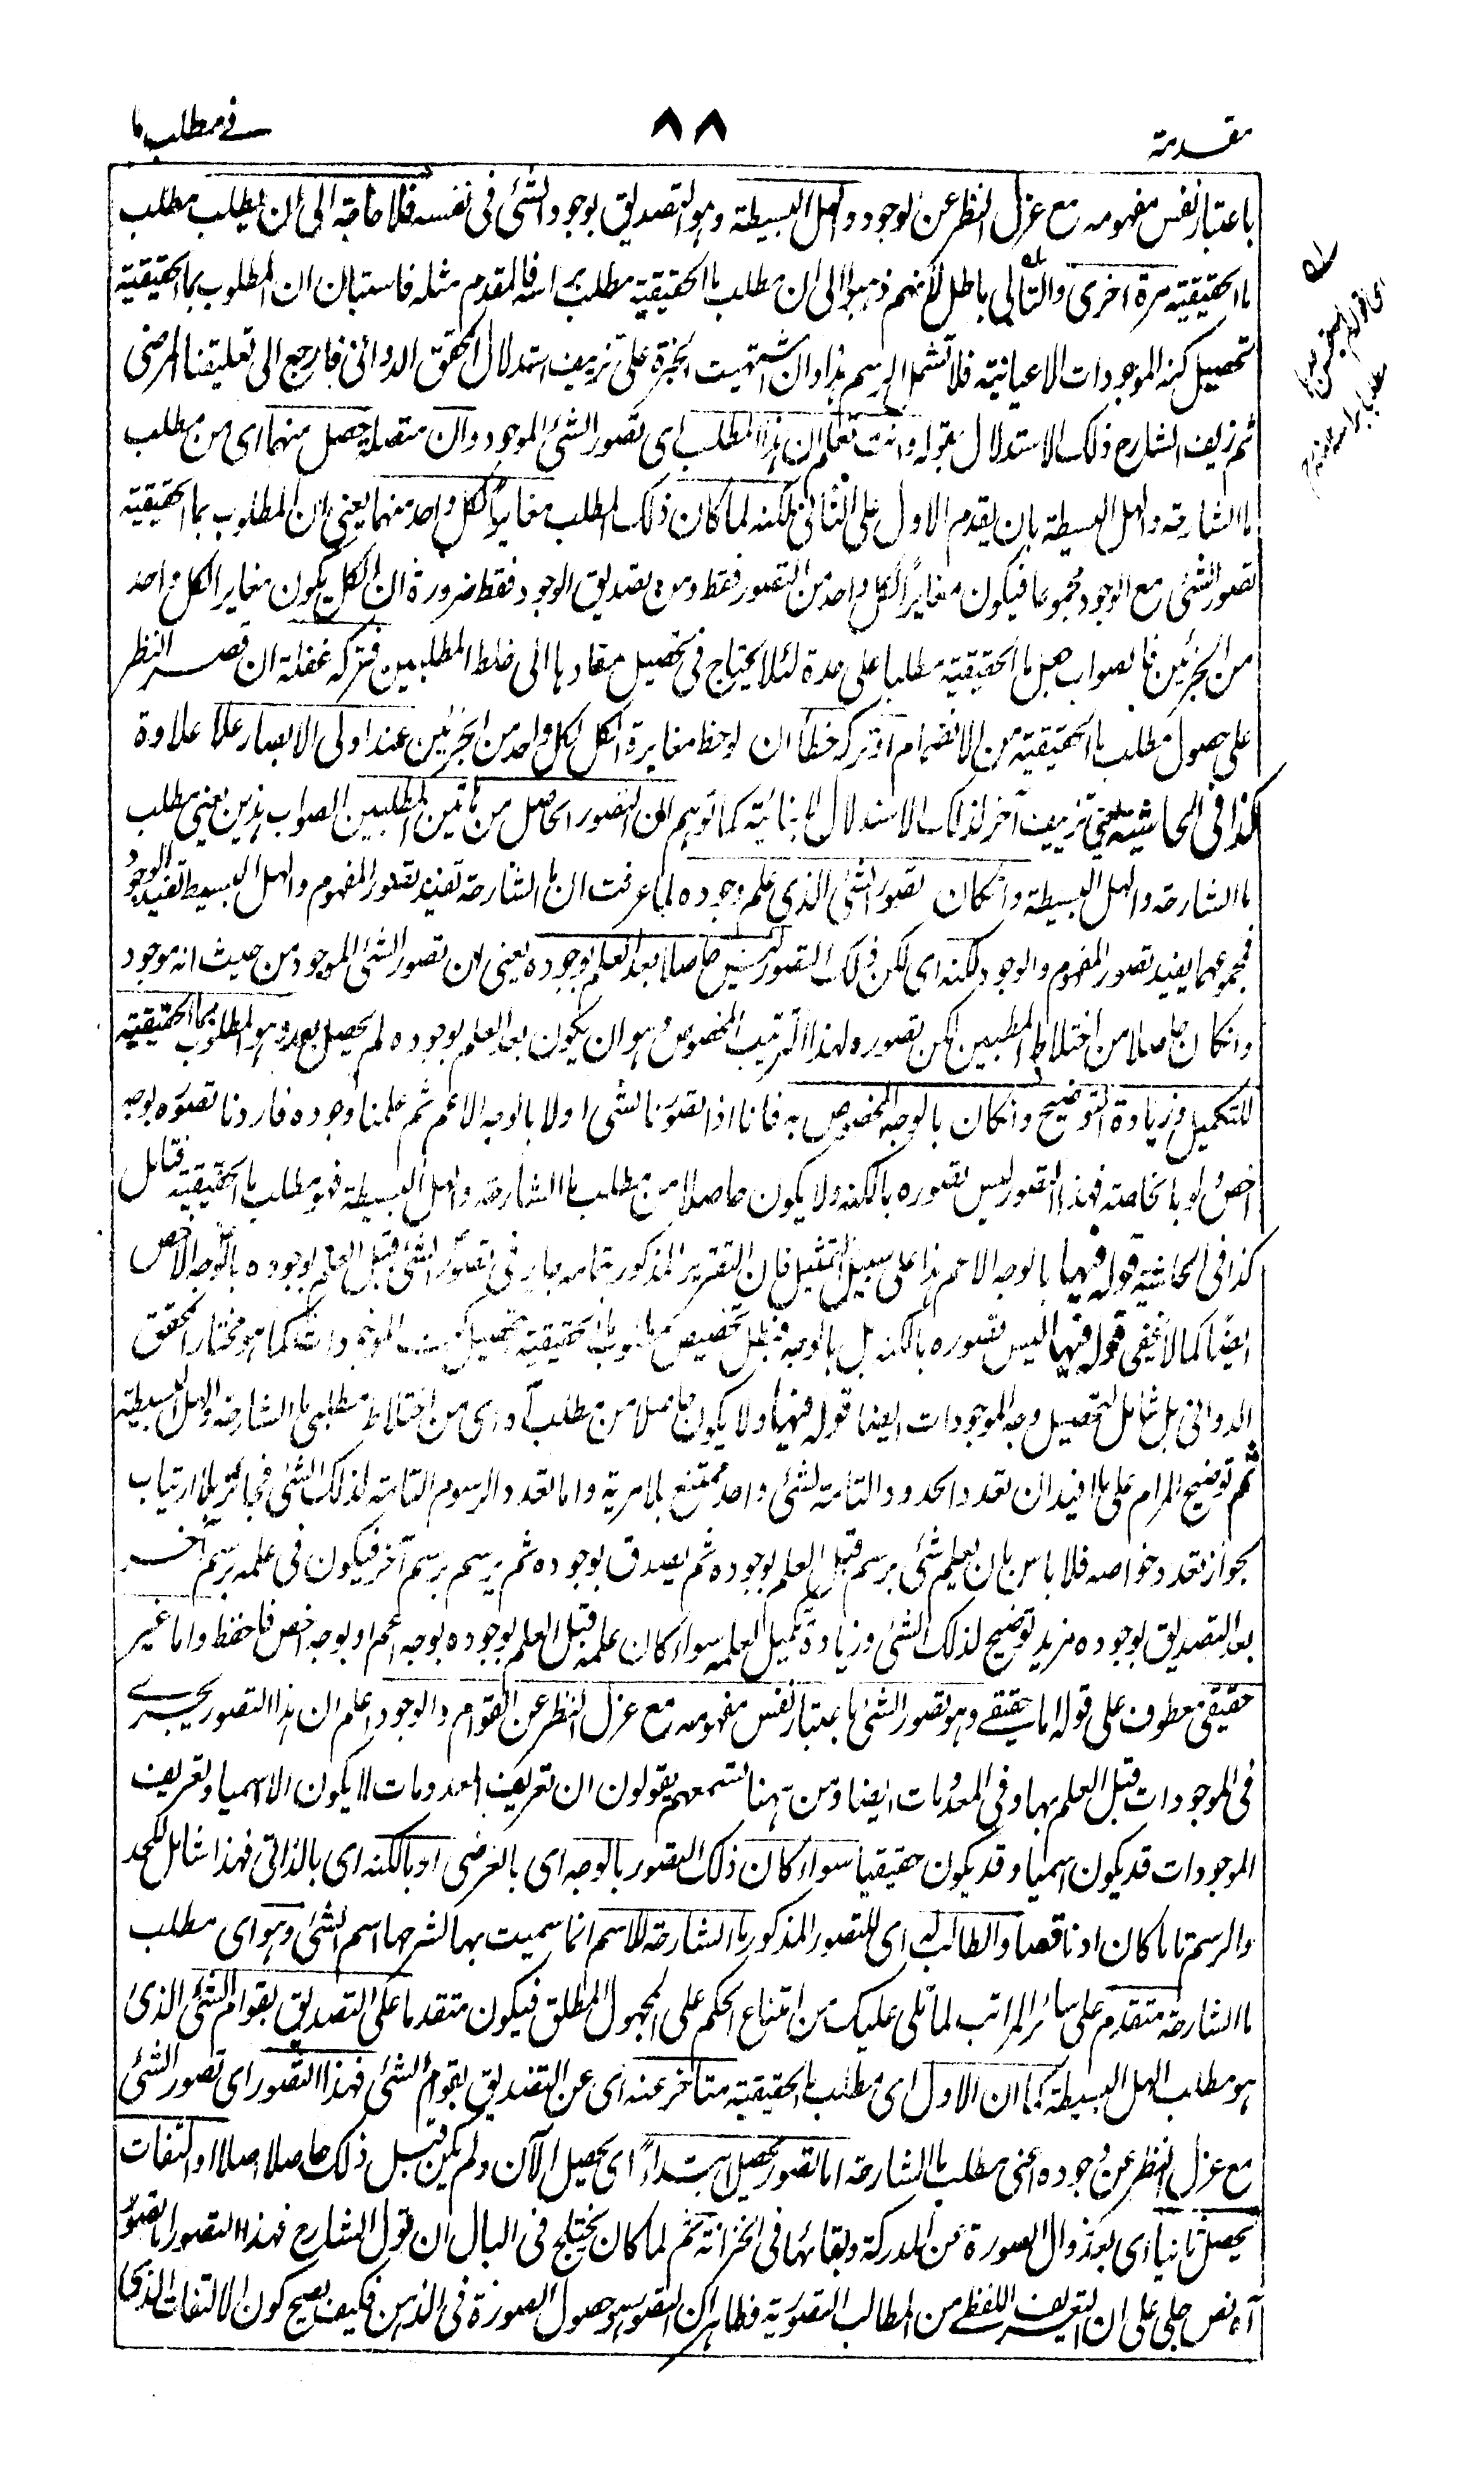 مقدمة
٨٨
في مطلب ما
باعتبار نفس مفهومه مع عزل النظر عن الوجود والهل البسيطة وهو التصديق بوجود الشئ فى نفسه فلا حاجة الى ان يطلب مطلب
ما الحقيقية مرة اخرى والتالى باطل لأنهم ذهبوا الى ان مطلب ما الحقيقية مطلب برأسه فالمقدم مثله فاستبان ان المطلوب بما الحقيقية
تحصيل كنه الموجودات الاعيانية فلا تشمل الرسم هذا وان اشتهيت الخبرة على تزييف استدلال المحقق الدوانى فارجع الى تعليقنا المرضى
ثم زيف الشارح ذلك الاستدلال بقوله وانت تعلم ان هذا المطلب اى تصور الشئ الموجود وان حصل منهما اى من مطلب
ما الشارحة والهل البسيطة بان يقدم الاول على الثانى لكنه لما كان ذلك المطلب مغايراً لكل واحد منهما يعنى ان المطلوب بما الحقيقية
تصور الشئ مع الوجود مجموعا فيكون مغايراً لكل واحد من التصور فقط ومن تصديق الوجود فقط ضرورة ان الكل يكون مغاير الكل واحد
من الجزئين فالصواب جعل ما الحقيقية مطلبا على حدة لئلا يحتاج فى تحصيل مفادها الى خلط المطلبين فتركه غفلة ان قصر النظر
على حصول مطلب ما الحقيقية من الانضمام او تركه خطأ ان لوحظ مغايرة الكل لكل واحد من الجزئين عند اولى الابصار علا علاوة
كذا فى الحاشية يعنى تزييف آخر لذلك الاستدلال لا بنائية كما توهم ان التصور الحاصل من هاتين المطلبين الصواب هذين يعنى مطلب
ما الشارحة والهل البسيطة وانكان تصور الشئ الذى علم وجوده لما عرفت ان ما الشارحة تفيد تصور المفهوم والهل البسيط تفيد الوجود
فمجموعهما يفيد تصور المفهوم والوجود لكنه اى لكن ذلك التصور ليس حاصلا بعد العلم بوجوده يعنى ان تصور الشئ الموجود من حيث انه موجود
وانكان حاصلا من اختلاط المطلبين لكن تصوره لهذا الترتيب المخصوص وهو ان يكون بعد العلم بوجوده لم يحصل بعد وهو المطلوب بما الحقيقية
للتكميل وزيادة التوضيح وانكان بالوجه المخصوص به فانا اذا تصورنا شئ اولا بالوجه الاعم ثم علمنا وجوده فاردنا تصوره بوجه
اخص او بالخاصة فهذا التصور ليس تصوره بالكنه ولا يكون حاصلا من مطلب ما الشارحة والهل البسيطة فهو مطلب ما الحقيقية فتأمل
كذا فى الحاشية قوله فيها بالوجه الاعم هذا على سبيل التمثيل فان التقرير المذكور بتمامه جار فى تصور الشئ قبل العلم بوجوده بالوجه الاخص
ايضا كما لا يخفى قوله فيها ليس تصوره بالكنه بل بالوجه فبطل تخصيص مطلوب ما الحقيقية بتحصيل كنه الموجودات كما هو مختار المحقق
الدوانى بل شامل لتحصيل وجه الموجودات ايضا قوله فيها ولا يكون حاصلا من مطلب آه اى من اختلاط مطلبى ما الشارحة والهل البسيطة
ثم توضيح المرام على ما افيد ان تعدد الحدود التامة لشئ واحد ممتنع بلا مرية واما تعدد الرسوم التامة لذلك الشئ فجائز بلا ارتياب
لجواز تعدد خواصه فلا باس بان يعلم شئ برسم قبل العلم بوجوده ثم يصدق بوجوده ثم يرسم برسم آخر فيكون فى علمه برسم آخر
بعد التصديق بوجوده مزيد توضيح لذلك الشئ وزيادة تكميل لعلمه سواء كان علمه قبل العلم بوجوده بوجه اعم او بوجه اخص فاحفظ واما غير
حقيقى معطوف على قوله اما حقيقى وهو تصور الشئ باعتبار نفس مفهومه مع عزل النظر عن القوام والوجود اعلم ان هذا التصور يجرى
فى الموجودات قبل العلم بها وفى المعدومات ايضا ومن ههنا تسمعهم يقولون ان تعريف المعدومات لا يكون الا اسميا وتعريف
الموجودات قد يكون اسميا وقد يكون حقيقيا سواء كان ذلك التصور بالوجه اى بالعرضى او بالكنه اى بالذاتى فهذا شامل للحد
والرسم تاما كان او ناقصا والطالب له اى للتصور المذكور ما الشارحة للاسم انما سميت بها لشرحها اسم الشئ وهو اى مطلب
ما الشارحة متقدم على سائر المراتب لما تلى عليك من امتناع الحكم على المجهول المطلق فيكون متقدما على التصديق بقوام الشئ الذى
هو مطلب الهل البسيطة كما ان الاول اى مطلب ما الحقيقية متأخر عنه اى عن التصديق بقوام الشئ فهذا التصور اى تصور الشئ
مع عزل النظر عن وجوده اعنى مطلب ما الشارحة اما تصور يحصل ابتداءً اى يحصل الآن ولم يكن قبل ذلك حاصلا اصلا او التفات
يحصل ثانيا اى بعد زوال الصورة عن المدركة وبقائها فى الخزانة ثم لما كان يختلج فى البال ان قول الشارح فهذا التصور اما تصور
آه نص جلى على ان التعريف اللفظى من المطالب التصورية فظاهر ان التصور هو حصول الصورة فى الذهن فكيف يصح كون الالتفات الذى